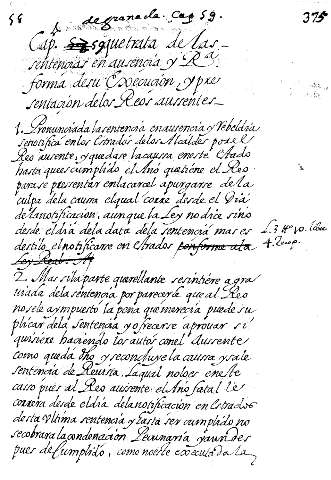 58 de granada. Cap. 59. 375
Cap. 59 que trata de las
sentencias en ausencia y R.ª
forma de su Execucion, y pre
sentacion de los Reos ausentes
1. Pronunciada la sentencia en ausencia y Rebeldia
se notifica en los Estrados de los Alcaldes por el
Reo ausente, y quedase la causa en este Estado
hasta que es cumplido el Año que tiene el Reo
para se presentar en la carcel a purgarse de la
culpa de la causa el qual corre desde el Dia
de la notificacion, aunque la Ley no dice sino
desde el dia de la data de la sentencia mas es
destilo el notificarse en Estrados conforme a la
Ley Real
L. 3 tto. 10. libro
4. Recop.
2. Mas si la parte querellante se sintiere agra
uiada de la sentencia por parecerle que al Reo
no se le a ympuesto la pena que merecia puede su
plicar de la Sentencia y ofrecerse a prouar si
quisiere haciendo los autos con el Ausente
como queda dho, y se concluye la causa y sale
sentencia de Reuista, la qual notoes en este
caso pues al Reo ausente el Año fatal le
correra desde el dia de la notificacion en Estrados
desta Vltima sentencia y hasta ser cumplido no
se cobrara la condenacion Pecuniaria y aun des
pues de Cumplido, como no este executada la